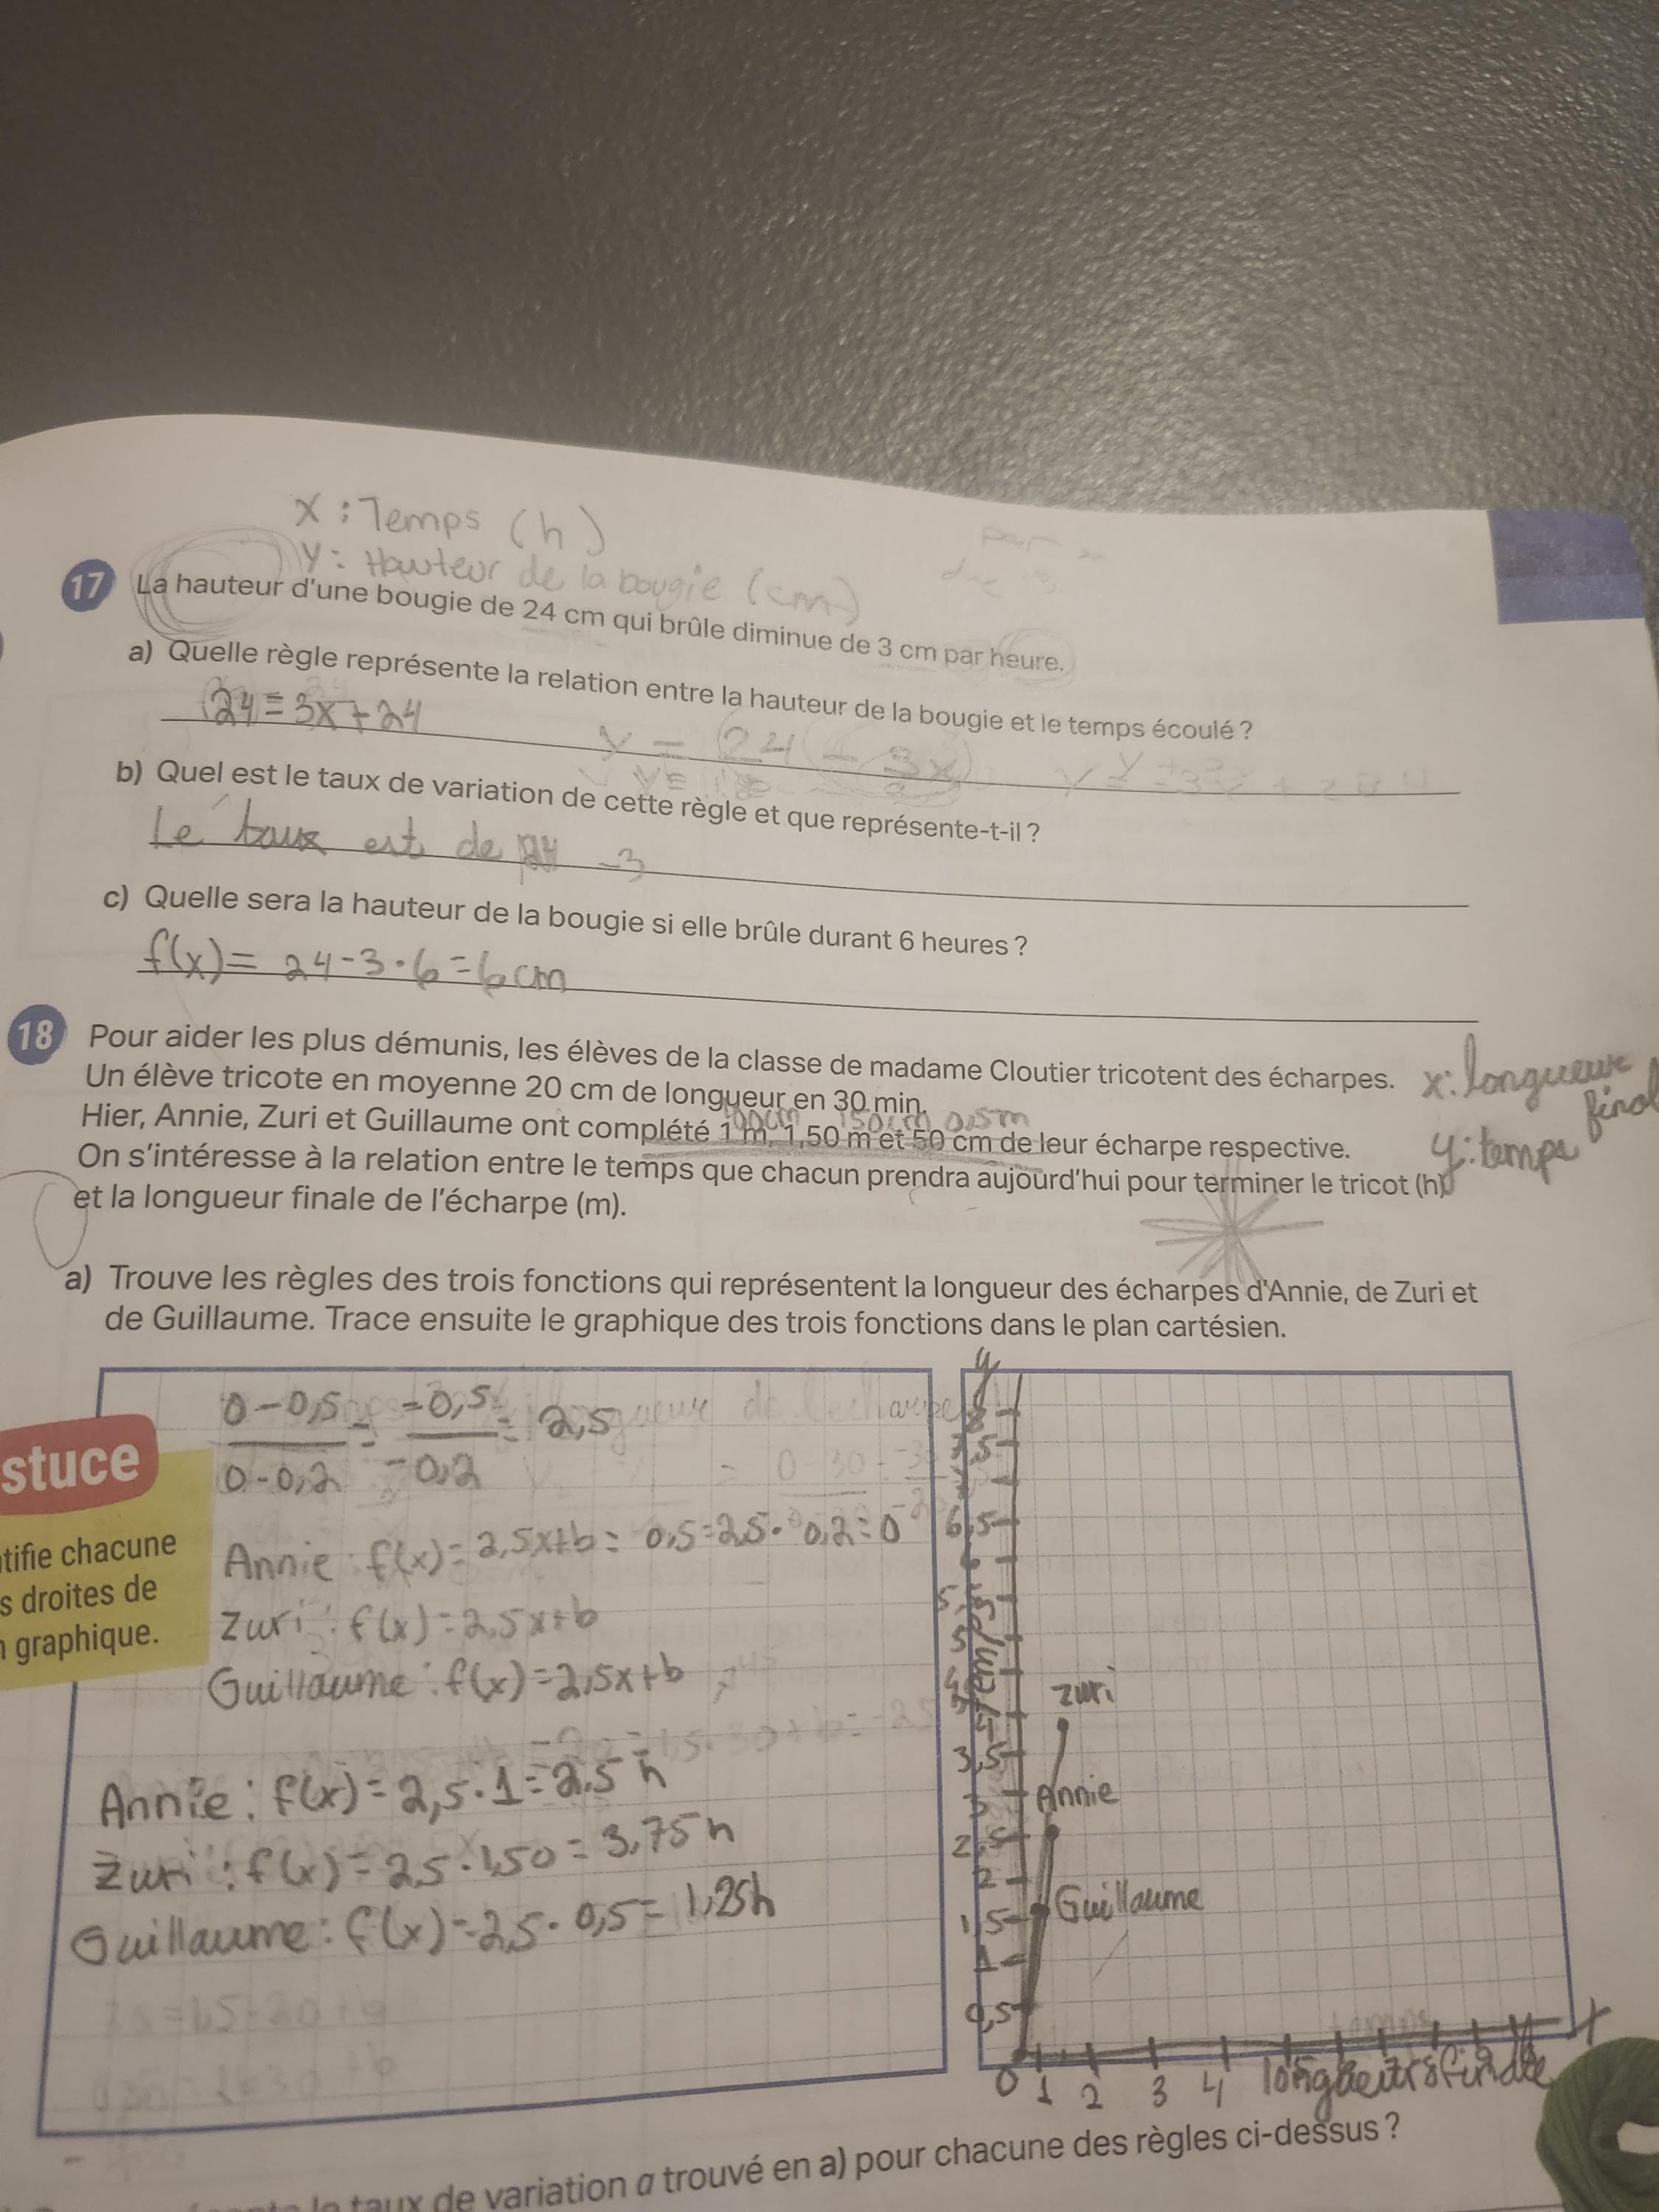 x : Temps (h)
y : Hauteur de la bougie (cm)
17 La hauteur d'une bougie de 24 cm qui brûle diminue de 3 cm par heure.
a) Quelle règle représente la relation entre la hauteur de la bougie et le temps écoulé ?
24 = 3x + 24
y = 24 - 3x
b) Quel est le taux de variation de cette règle et que représente-t-il ?
Le taux est de -3
c) Quelle sera la hauteur de la bougie si elle brûle durant 6 heures ?
f(x) = 24-3·6 = 6 cm
18 Pour aider les plus démunis, les élèves de la classe de madame Cloutier tricotent des écharpes.
x: longueur final
Un élève tricote en moyenne 20 cm de longueur en 30 min.
100cm 150cm 0,5m
Hier, Annie, Zuri et Guillaume ont complété 1 m, 1,50 m et 50 cm de leur écharpe respective.
y: temps
On s'intéresse à la relation entre le temps que chacun prendra aujourd'hui pour terminer le tricot (h)
et la longueur finale de l'écharpe (m).
a) Trouve les règles des trois fonctions qui représentent la longueur des écharpes d'Annie, de Zuri et
de Guillaume. Trace ensuite le graphique des trois fonctions dans le plan cartésien.
stuce
tifie chacune
s droites de
graphique.
0-0,5 = -0,5 = 2,5
0-0,2 -0,2
Annie : f(x) = 2,5x+b = 0,5 = 2,5 · 0,2 = 0
Zuri : f(x) = 2,5x+b
Guillaume : f(x) = 2,5x+b
Annie : f(x) = 2,5·1 = 2.5 h
Zuri : f(x) = 2.5·1,50 = 3,75 h
Guillaume : f(x) = 2,5· 0,5 = 1,25h
y
6,5
5
temps
Zuri
3,5
3
Annie
2,5
2
Guillaume
1,5
1
0,5
x
0 1 2 3 4
longueur finale
le taux de variation a trouvé en a) pour chacune des règles ci-dessus ?